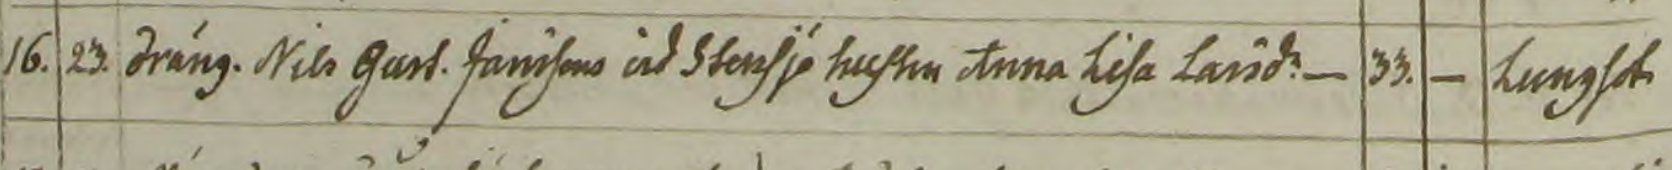 16. 23. dräng. Nils Gust. Janssons vid Stensjö hustru Anna Lisa Larsdr — 33. — Lungsot